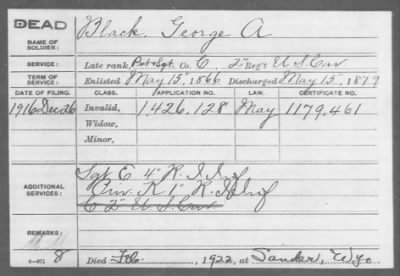 DEAD
NAME OF SOLDIER: Black, George A
SERVICE: Late rank, Pvt & Sgt, Co. C, 2" Reg't U S. Cav
TERM OF SERVICE: Enlisted May 15", 1866 Discharged May 15", 1879
DATE OF FILING. CLASS. APPLICATION NO. LAW. CERTIFICATE NO.
1916 Dec 26 Invalid, 1.426.128 May 1179.461
Widow,
Minor,
ADDITIONAL SERVICES:
Sgt E 4" R. I Inf
Priv. K 1" R. I Inf
C 2" U S. Cav
REMARKS:
8 Died Feb , 1922, at Sander, Wyo.